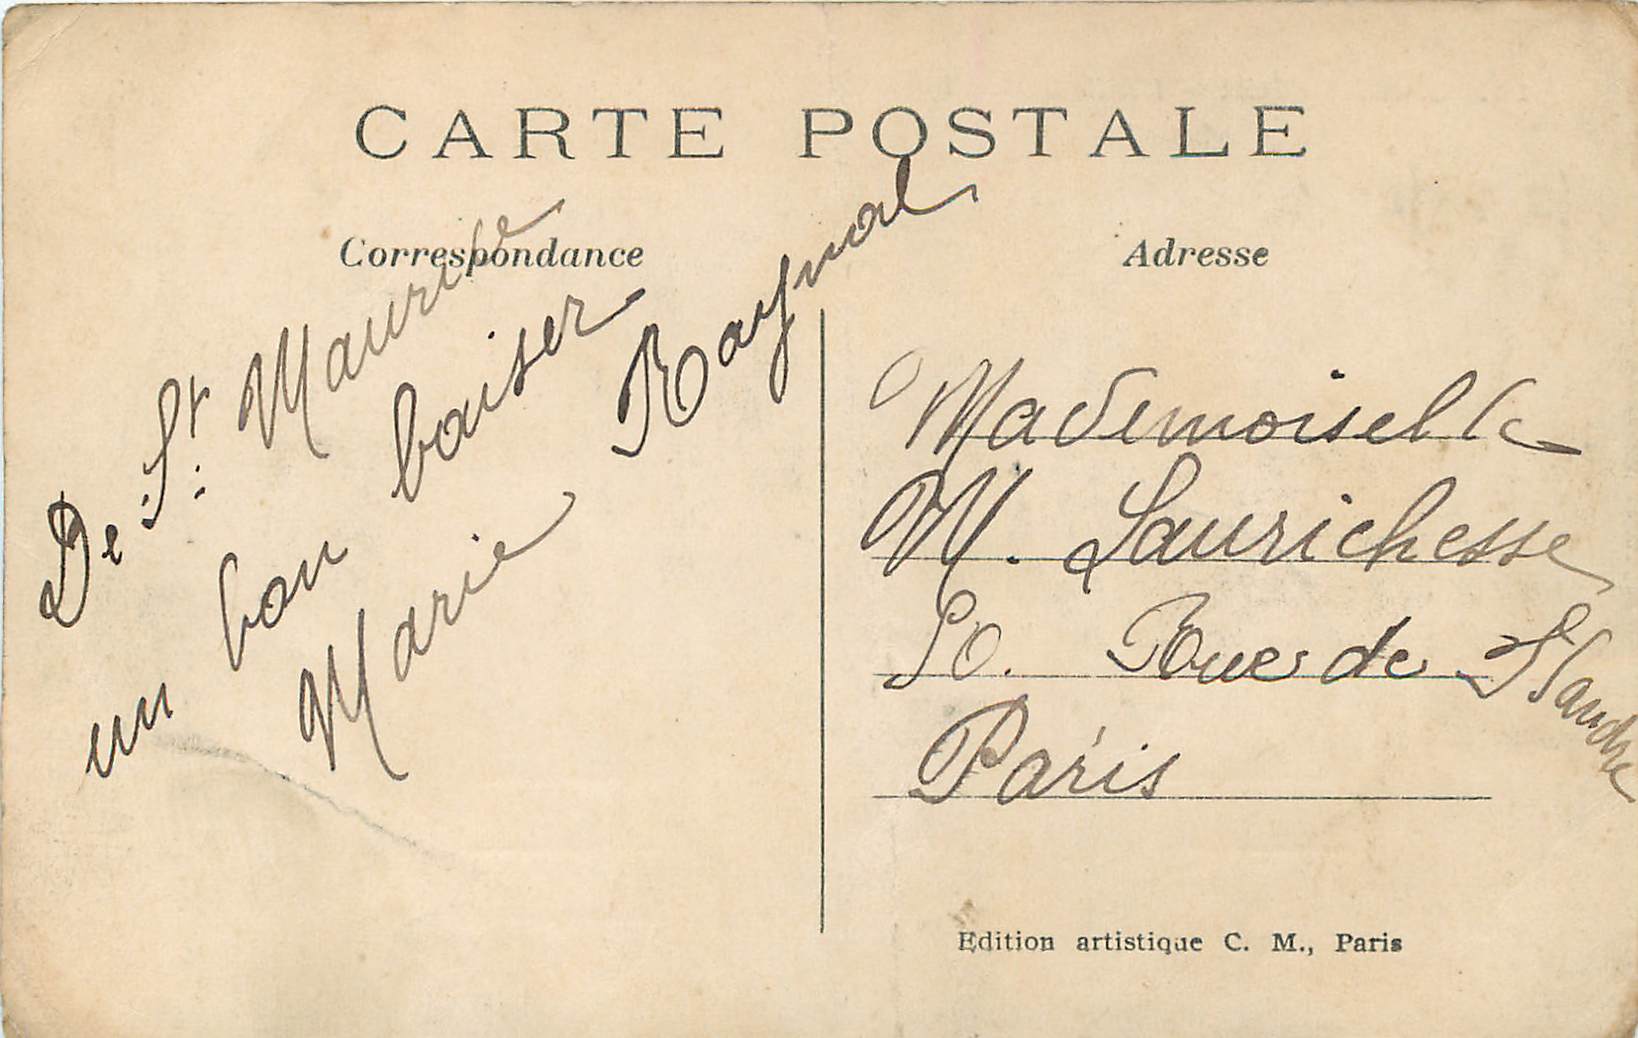 CARTE POSTALE
Correspondance
De St. Maurice
un bon baiser
Marie Raynal
Adresse
Mademoiselle
M. Laurichesse
50. Rue de Flandre
Paris
Edition artistique C. M., Paris